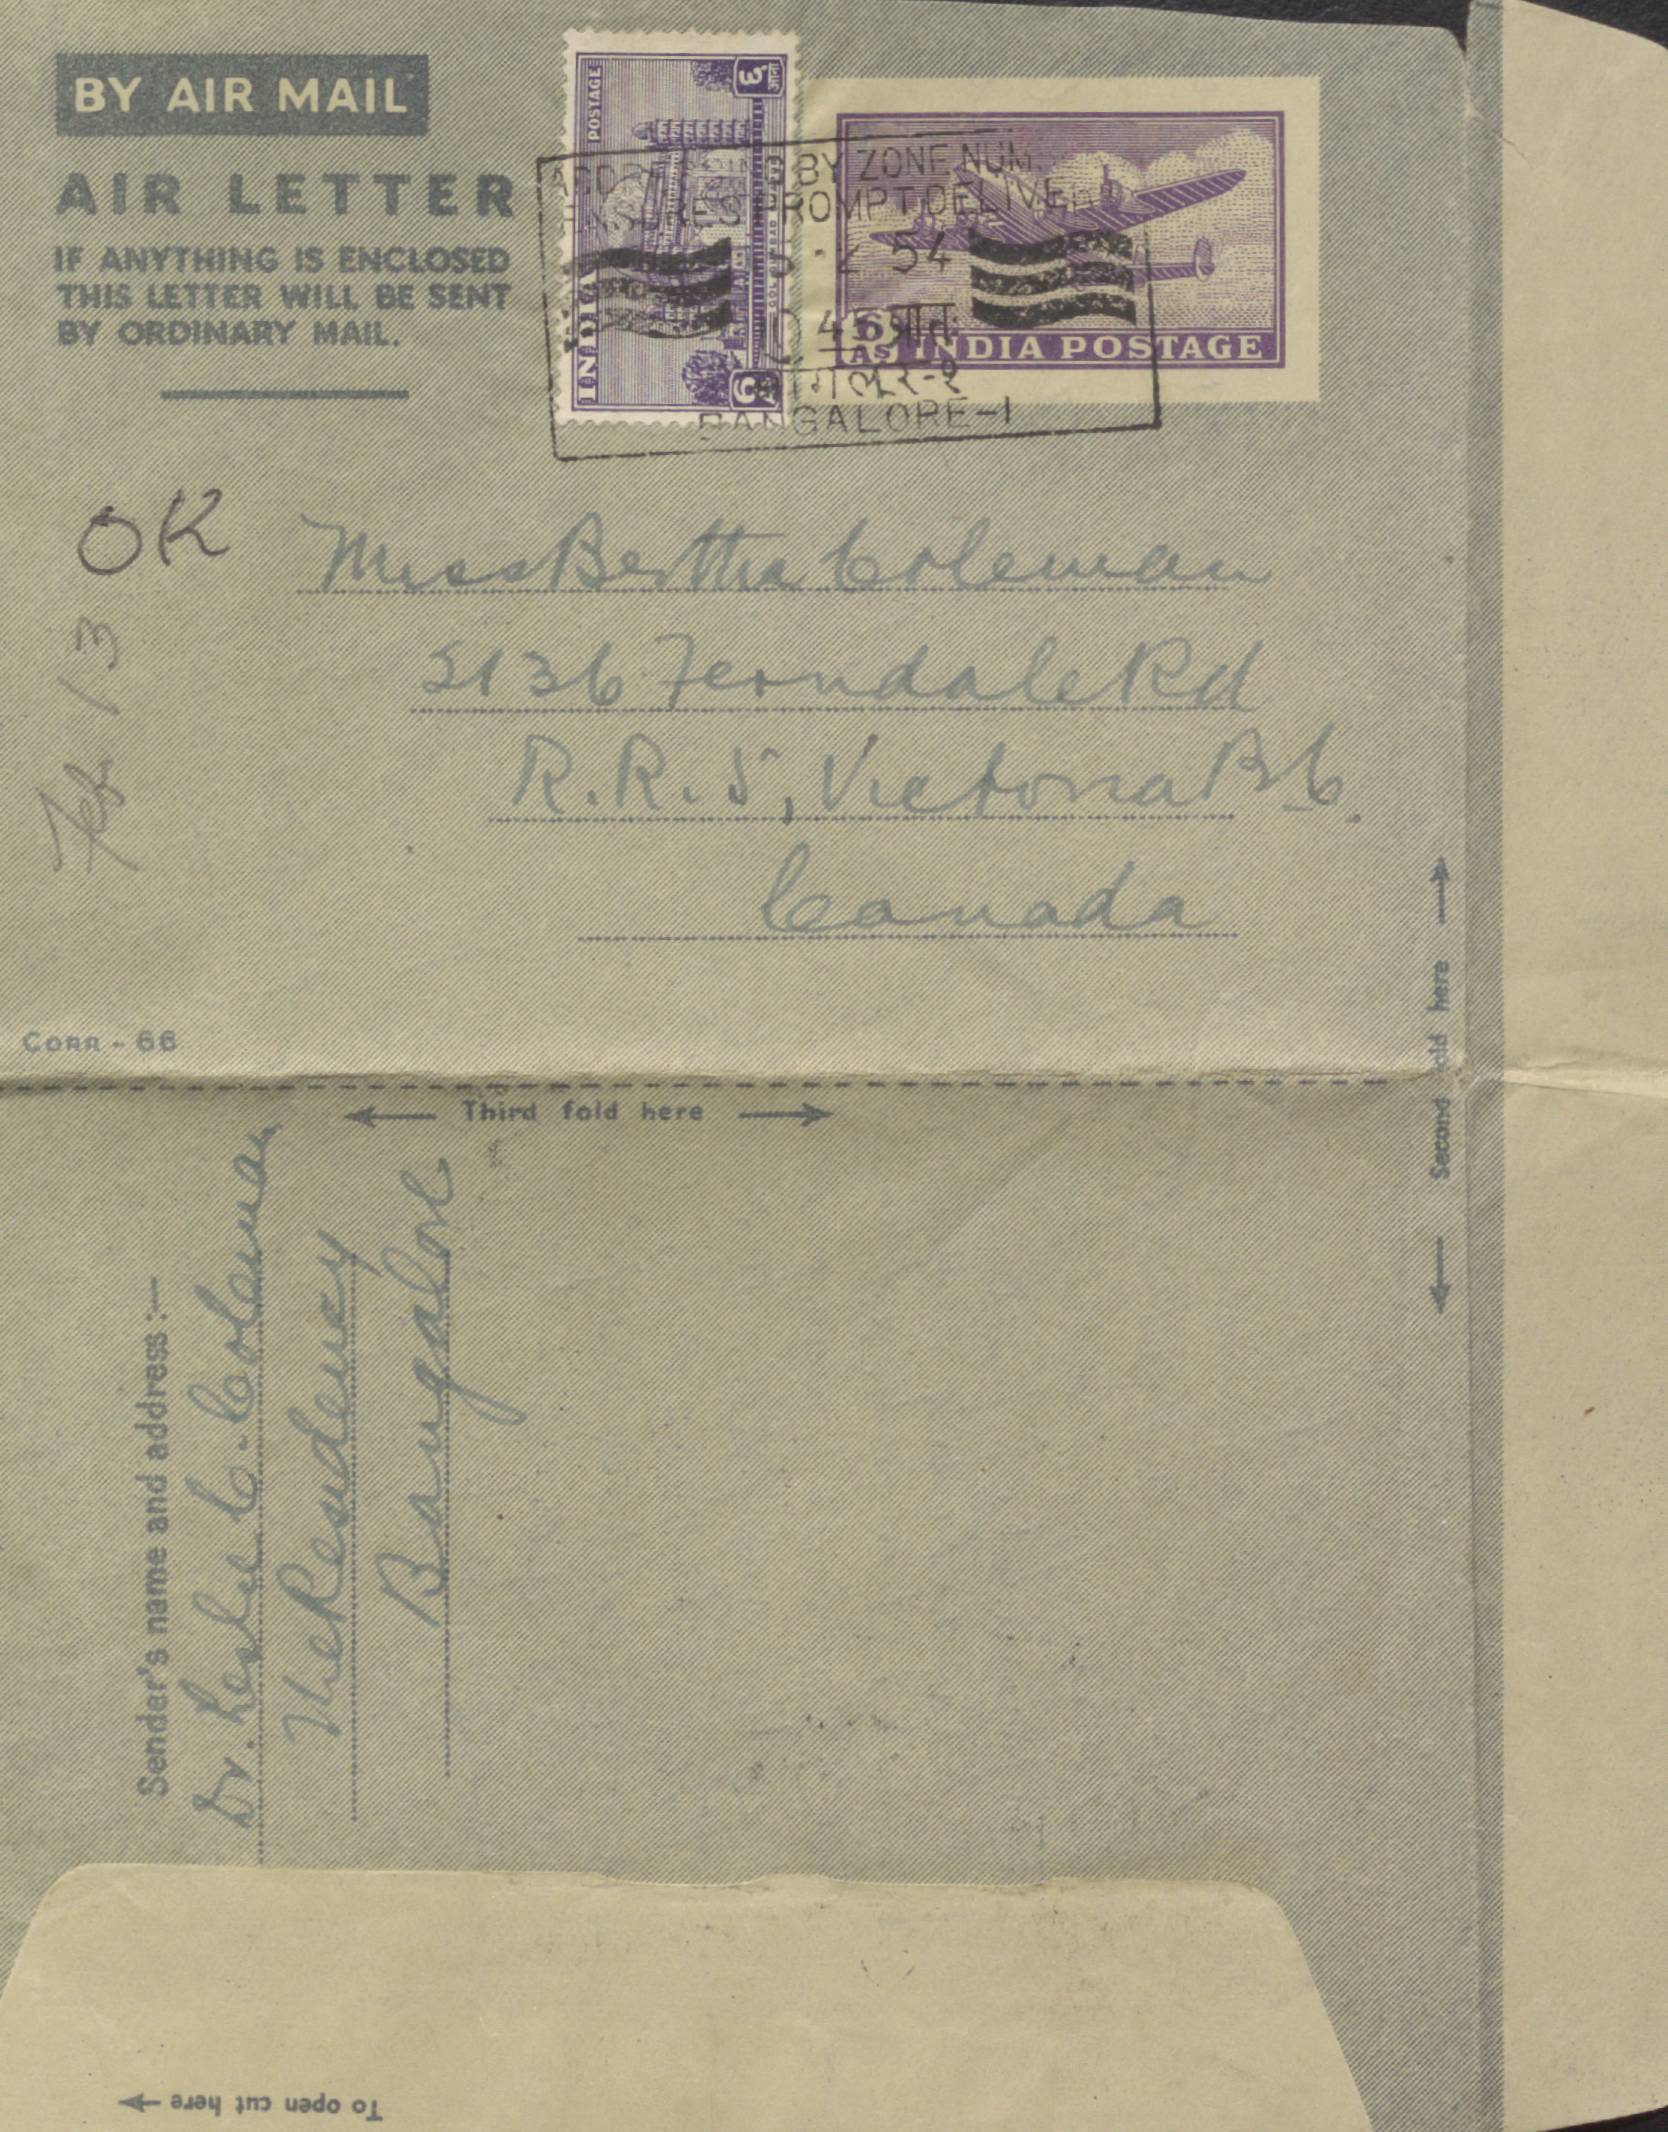 BY AIR MAIL
AIR LETTER
IF ANYTHING IS ENCLOSED
THIS LETTER WILL BE SENT
BY ORDINARY MAIL.
POSTAGE
६ आना
INDIA
6
BY ZONE NUM
ENSURES PROMPT DELIVER
2 54
BANGALORE-1
6 As INDIA POSTAGE
OK
Feb 13
Miss Bertha Coleman
2136 Ferndale Rd
R.R.5, Victoria B C
Canada
CORR - 66
Third fold here
Second fold here
Sender's name and address:—
Dr. Leslie C. Coleman
The Residency
Bangalore
To open cut here